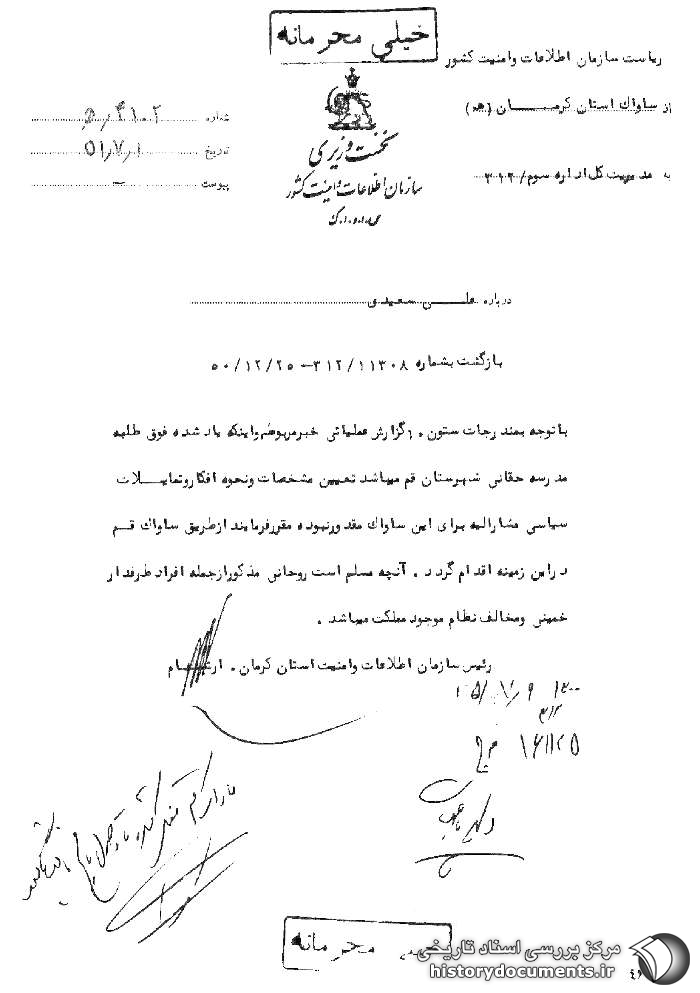 خیلی محرمانه
ریاست سازمان اطلاعات وامنیت کشور
از ساواک استان کرمـــان (ه‍)
به مدیریت کل اداره سوم/۳۱۲
نخست وزیری
سازمان اطلاعات و امنیت کشور
س.ا.و.ا.ک
شماره
تاریخ ۵۱/۷/۱
پیوست -
درباره علـــی سعیدی
بازگشت بشماره ۳۱۲/۱۱۳۰۸-۵۰/۱۲/۲۵
باتوجه بمندرجات ستون ۱۰گزارش عملیاتی خبرمربوطه واینکه یاد شده فوق طلبه
مدرسه حقانی شهرستان قم میباشد تعیین مشخصات ونحوه افکاروتمایــلات
سیاسی مشارالیه برای این ساواک مقدورنبوده مقررفرمایند ازطریق ساواک قــم
دراین زمینه اقدام گردد. آنچه مسلم است روحانی مذکورازجمله افراد طرفدار
خمینی ومخالف نظام موجود مملکت میباشد.
رئیس سازمان اطلاعات وامنیت استان کرمان. ارتـــام
۳۱۲
محرمانه
مرکز بررسی اسناد تاریخی
historydocuments.ir